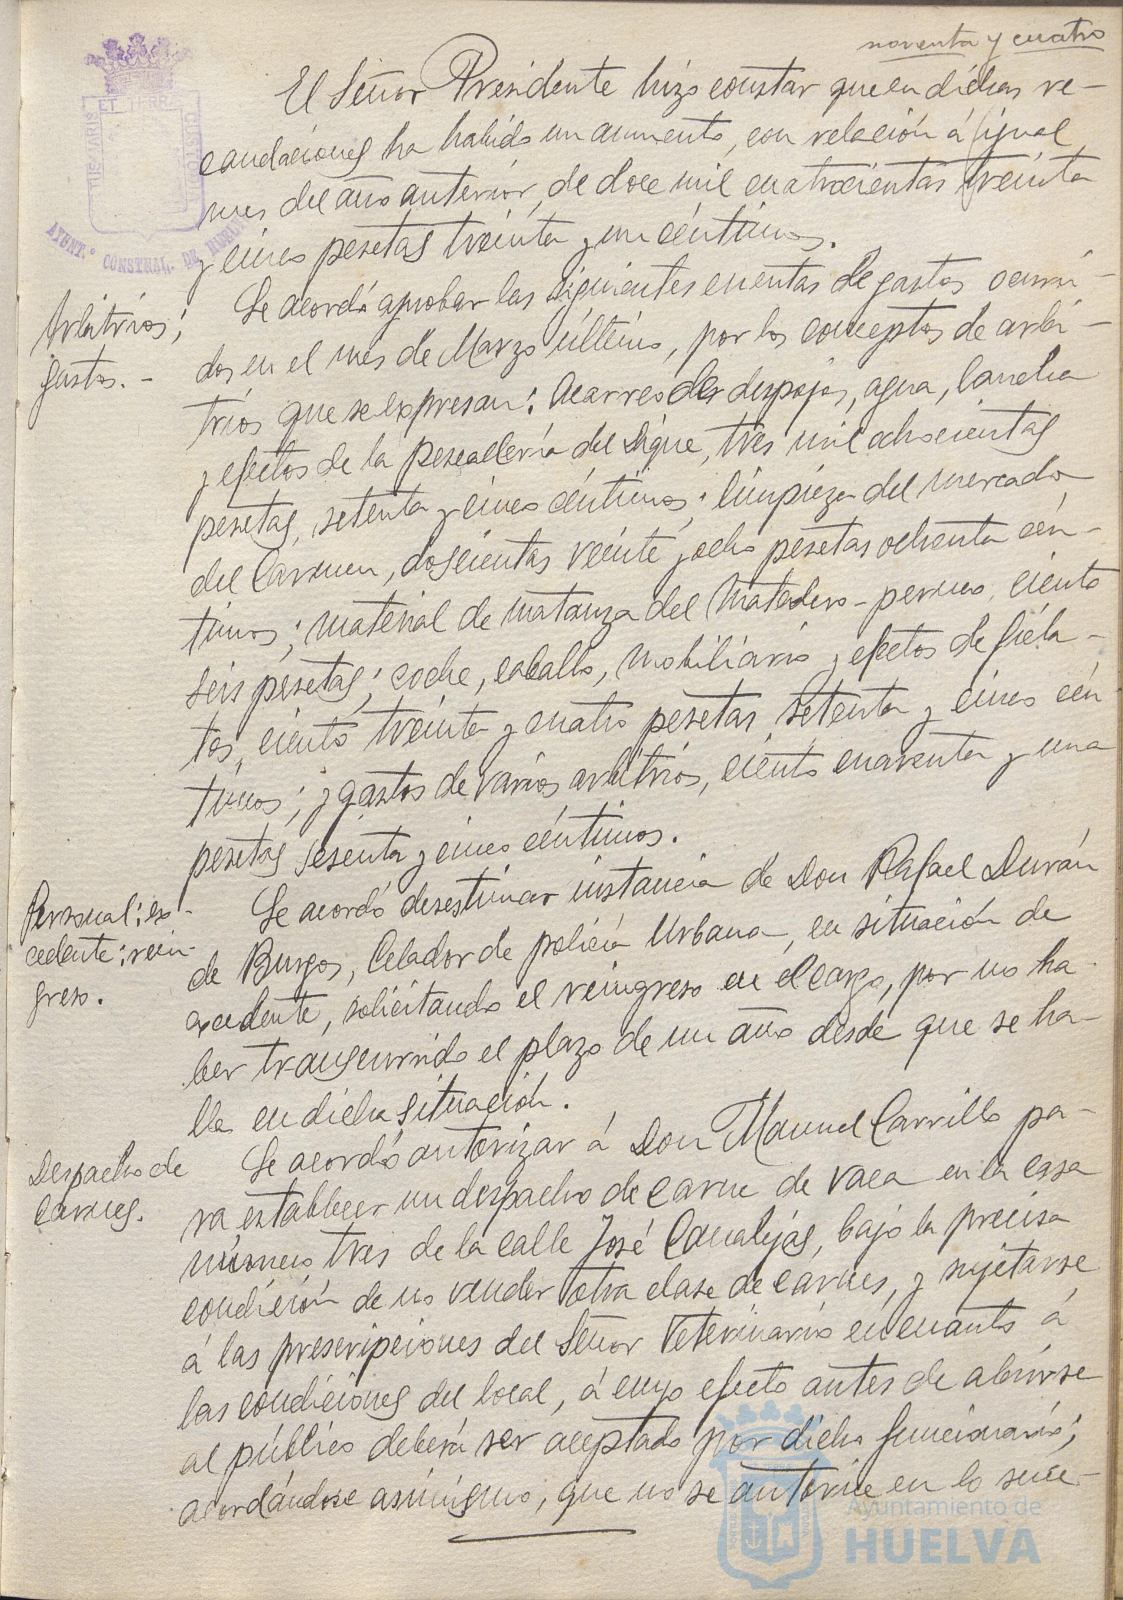 noventa y cuatro
El Señor Presidente hizo constar que en dichas re-
caudaciones ha habido un aumento, con relación á igual
mes del año anterior, de doce mil cuatrocientas treinta
y cinco pesetas treinta y un céntimos.
Arbitrios;
gastos.-
Se acordó aprobar las siguientes cuentas de gastos ocurri-
dos en el mes de Marzo último, por los conceptos de arbi-
trios que se expresan: Acarreo de despojos, agua, lancha
y efectos de la pescadería del Dique, tres mil ochocientas
pesetas, setenta y cinco céntimos; limpieza del mercado
del Carmen, doscientas veinte y ocho pesetas ochenta cén-
timos; material de matanza del Matadero-perneo, ciento
seis pesetas; coche, caballo, mobiliario y efectos de fiela-
tos, ciento treinta y cuatro pesetas setenta y cinco cén
timos; y gastos de varios arbitrios, ciento cuarenta y una
pesetas sesenta y cinco céntimos.
Personal: ex-
cedente: rein-
greso.
Se acordó desestimar instancia de Don Rafael Durán
de Burgos, Celador de policía Urbana, en situación de
excedente, solicitando el reingreso en el cargo, por no ha-
ber transcurrido el plazo de un año desde que se ha-
lla en dicha situación.
Despacho de
Carnes.
Se acordó autorizar á Don Manuel Carrillo pa-
ra establecer un despacho de carne de vaca en la casa
número tres de la calle José Canalejas, bajo la precisa
condición de no vender otra clase de carnes, y sujetarse
á las prescripciones del Señor Veterinario en cuanto á
las condiciones del local, á cuyo efecto antes de abrirse
al público deberá ser aceptado por dicho funcionario;
acordándose asimismo, que no se autorice en lo suce-
AYUNT.º CONSTNAL. DE HUELVA
Ayuntamiento de
HUELVA